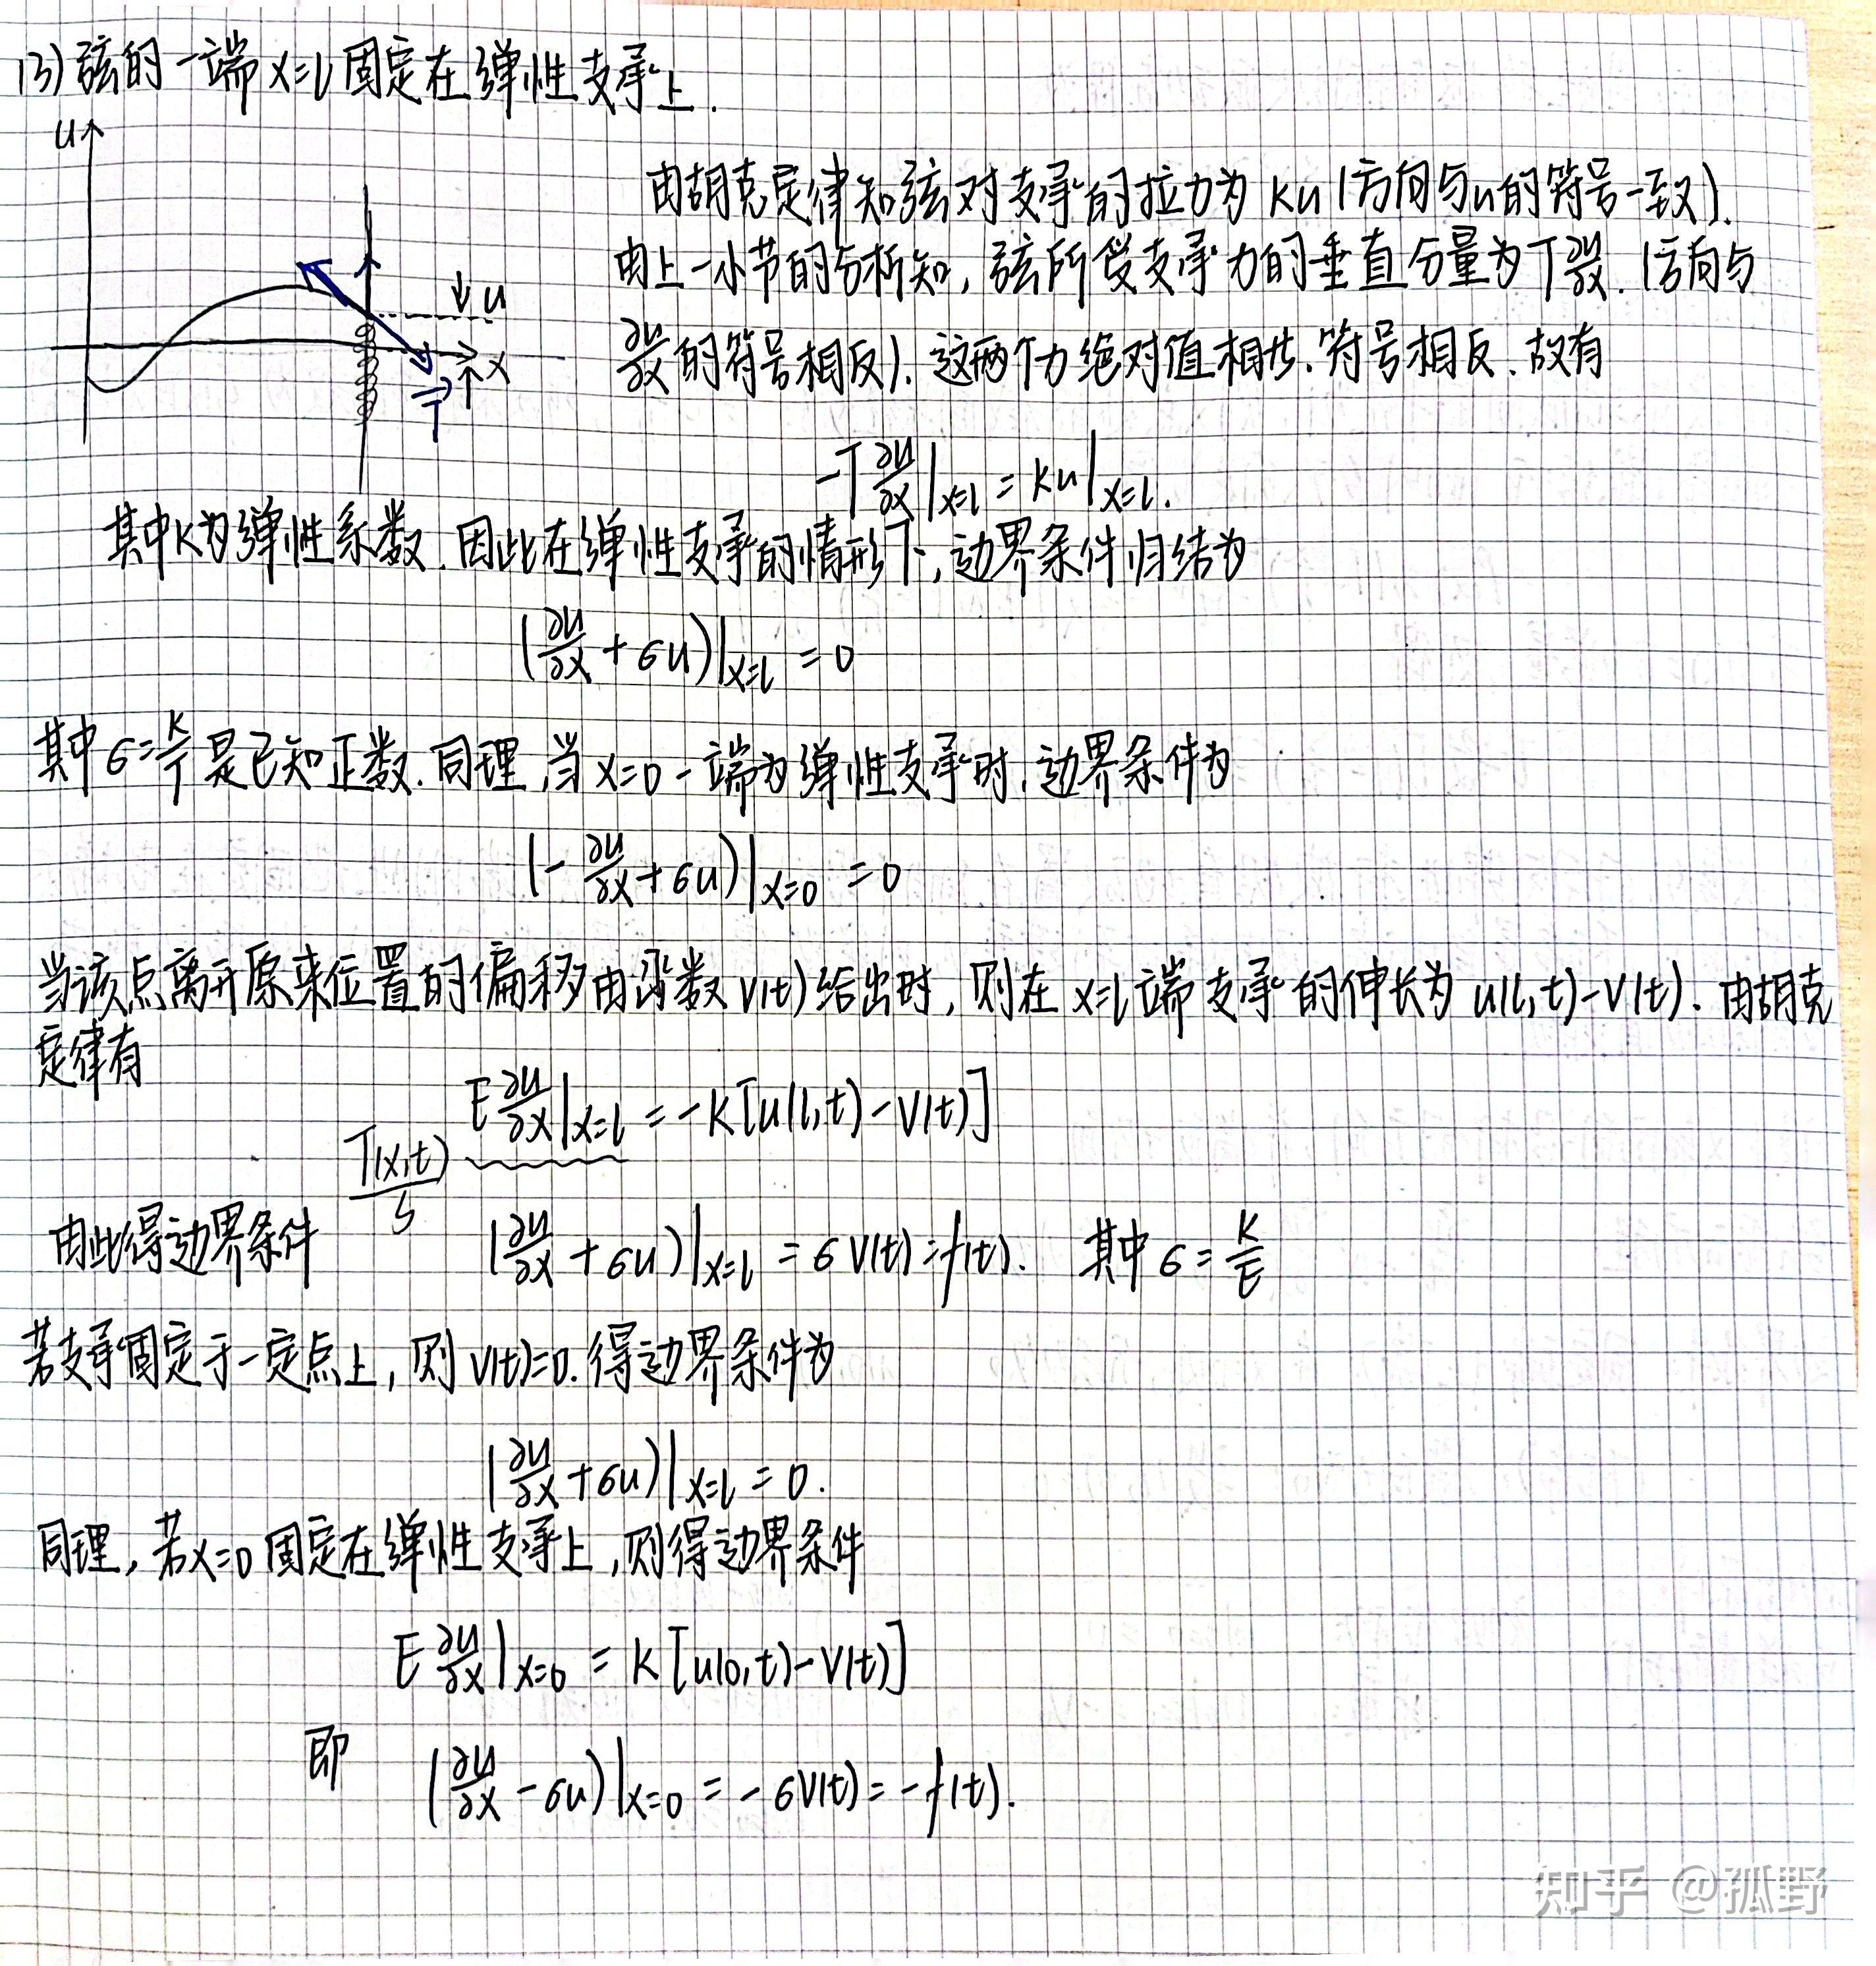 (3) 弦的一端 x=l 固定在弹性支承上.
u
u
x
T
由胡克定律知弦对支承的拉力为 ku (方向与u的符号一致).
由上一小节的分析知, 弦所受支承力的垂直分量为 T ∂u/∂x. (方向与
∂u/∂x 的符号相反). 这两个力绝对值相等. 符号相反. 故有
-T ∂u/∂x |x=l = ku |x=l.
其中k为弹性系数. 因此在弹性支承的情形下, 边界条件归结为
(∂u/∂x + σu)|x=l = 0
其中 σ=k/T 是已知正数. 同理, 当 x=0 一端为弹性支承时, 边界条件为
(-∂u/∂x + σu)|x=0 = 0
当该点离开原来位置的偏移由函数 v(t) 给出时, 则在 x=l 端支承的伸长为 u(l,t)-v(t). 由胡克
定律有
E ∂u/∂x |x=l = -k[u(l,t)-v(t)]
T(x,t)/S
由此得边界条件 (∂u/∂x + σu)|x=l = σv(t) = f(t). 其中 σ = k/E
若支承固定于一定点上, 则 v(t)=0. 得边界条件为
(∂u/∂x + σu)|x=l = 0.
同理, 若x=0 固定在弹性支承上, 则得边界条件
E ∂u/∂x |x=0 = k[u(0,t)-v(t)]
即 (∂u/∂x - σu)|x=0 = -σv(t) = -f(t).
知乎 @孤野